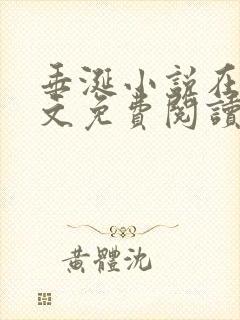 垂涎小說在
文免費閱讀
黃體沈